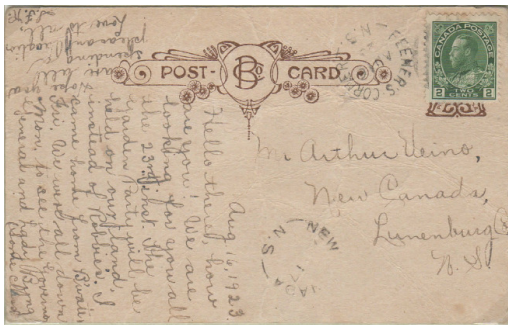 POST CARD
B Co
CANADA POSTAGE
2 2
TWO
CENTS
N.S.
Mr Arthur Veino,
New Canada,
Lunenburg Co
N. S.
NEW
N.S.
Aug 16, 1923.
Hello there, how
are you! We are
looking for you all
the 23rd inst. The
Garden Party will be
held on our Island
instead of I
came home from
Fri. We were all down
Mon. to see the Governor
General and Lady Byng
spending a
pleasant
Love to all.